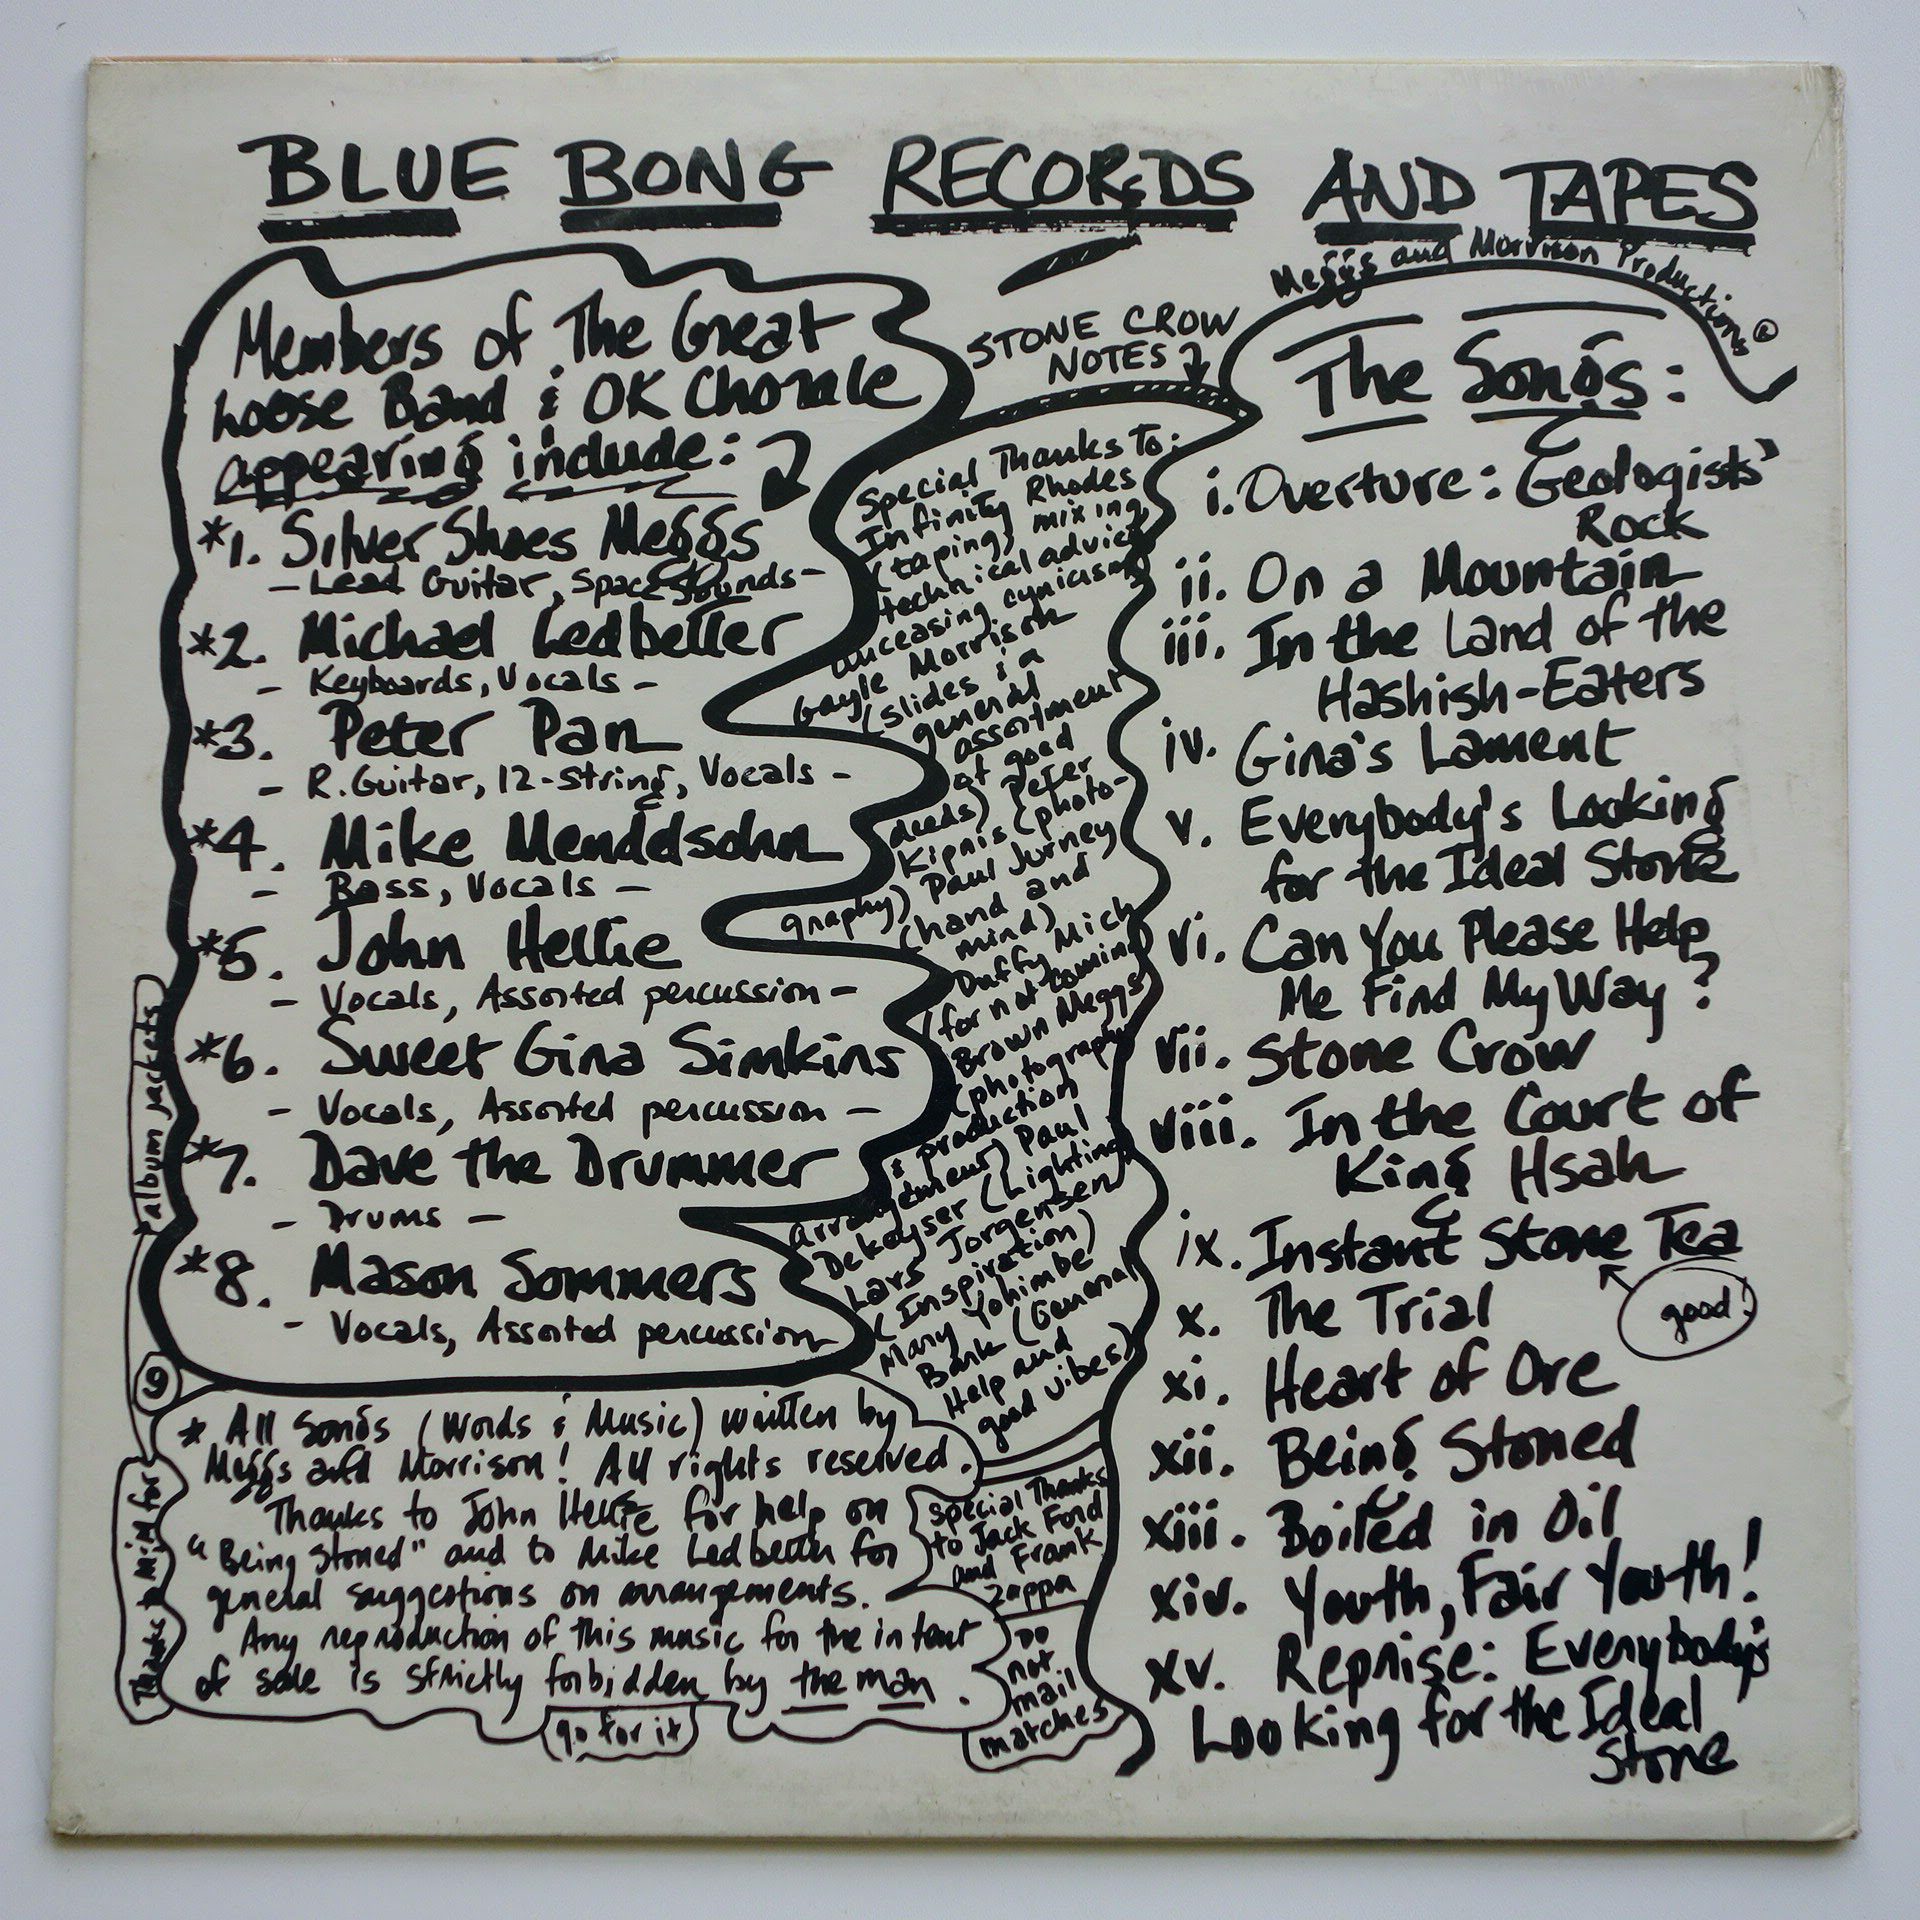 BLUE BONG RECORDS AND TAPES
Meggs and Morrison Productions
Members of The Great
Loose Band & OK Chorale
appearing include:
*1. Silver Shoes Meggs
- Lead Guitar, Space Sounds -
*2. Michael Ledbetter
- Keyboards, Vocals -
*3. Peter Pan
- R. Guitar, 12-String, Vocals -
*4. Mike Mendelsohn
- Bass, Vocals -
*5. John Hellie
- Vocals, Assorted percussion -
*6. Sweet Gina Simkins
- Vocals, Assorted percussion -
*7. Dave the Drummer
- Drums -
*8. Mason Sommers
- Vocals, Assorted percussion
* All songs (Words & Music) written by
Meggs and Morrison! All rights reserved.
Thanks to John Hellie for help on
"Being Stoned" and to Mike Ledbetter for
general suggestions on arrangements.
Any reproduction of this music for the intent
of sale is strictly forbidden by the man.
go for it
Thanks to for
album jackets
STONE CROW
NOTES
Special Thanks To:
Infinity Rhodes
(taping, mixing,
technical advice,
unceasing cynicism)
Gayle Morrison
(slides & a
general
assortment
of good
deeds) Peter
Kipnis (photo-
graphy) Paul Jurney
(hand and
mind)
Duffy Mich
(for not coming)
Brown Meggs
(photography
& production
arrangement) Paul
DeKeyser (Lighting)
Lars Jorgensen
(Inspiration)
Many Yohimbe
Bark (General
Help and
good vibes)
Special Thanks
to Jack Ford
and Frank
Zappa
Do
not
mail
matches
The Songs:
i. Overture: Geologists'
Rock
ii. On a Mountain
iii. In the Land of the
Hashish-Eaters
iv. Gina's Lament
v. Everybody's Looking
for the Ideal Stone
vi. Can You Please Help
Me Find My Way?
vii. Stone Crow
viii. In the Court of
King Hsah
ix. Instant Stone Tea
good!
x. The Trial
xi. Heart of Ore
xii. Being Stoned
xiii. Boiled in Oil
xiv. Youth, Fair Youth!
xv. Reprise: Everybody's
Looking for the Ideal
Stone